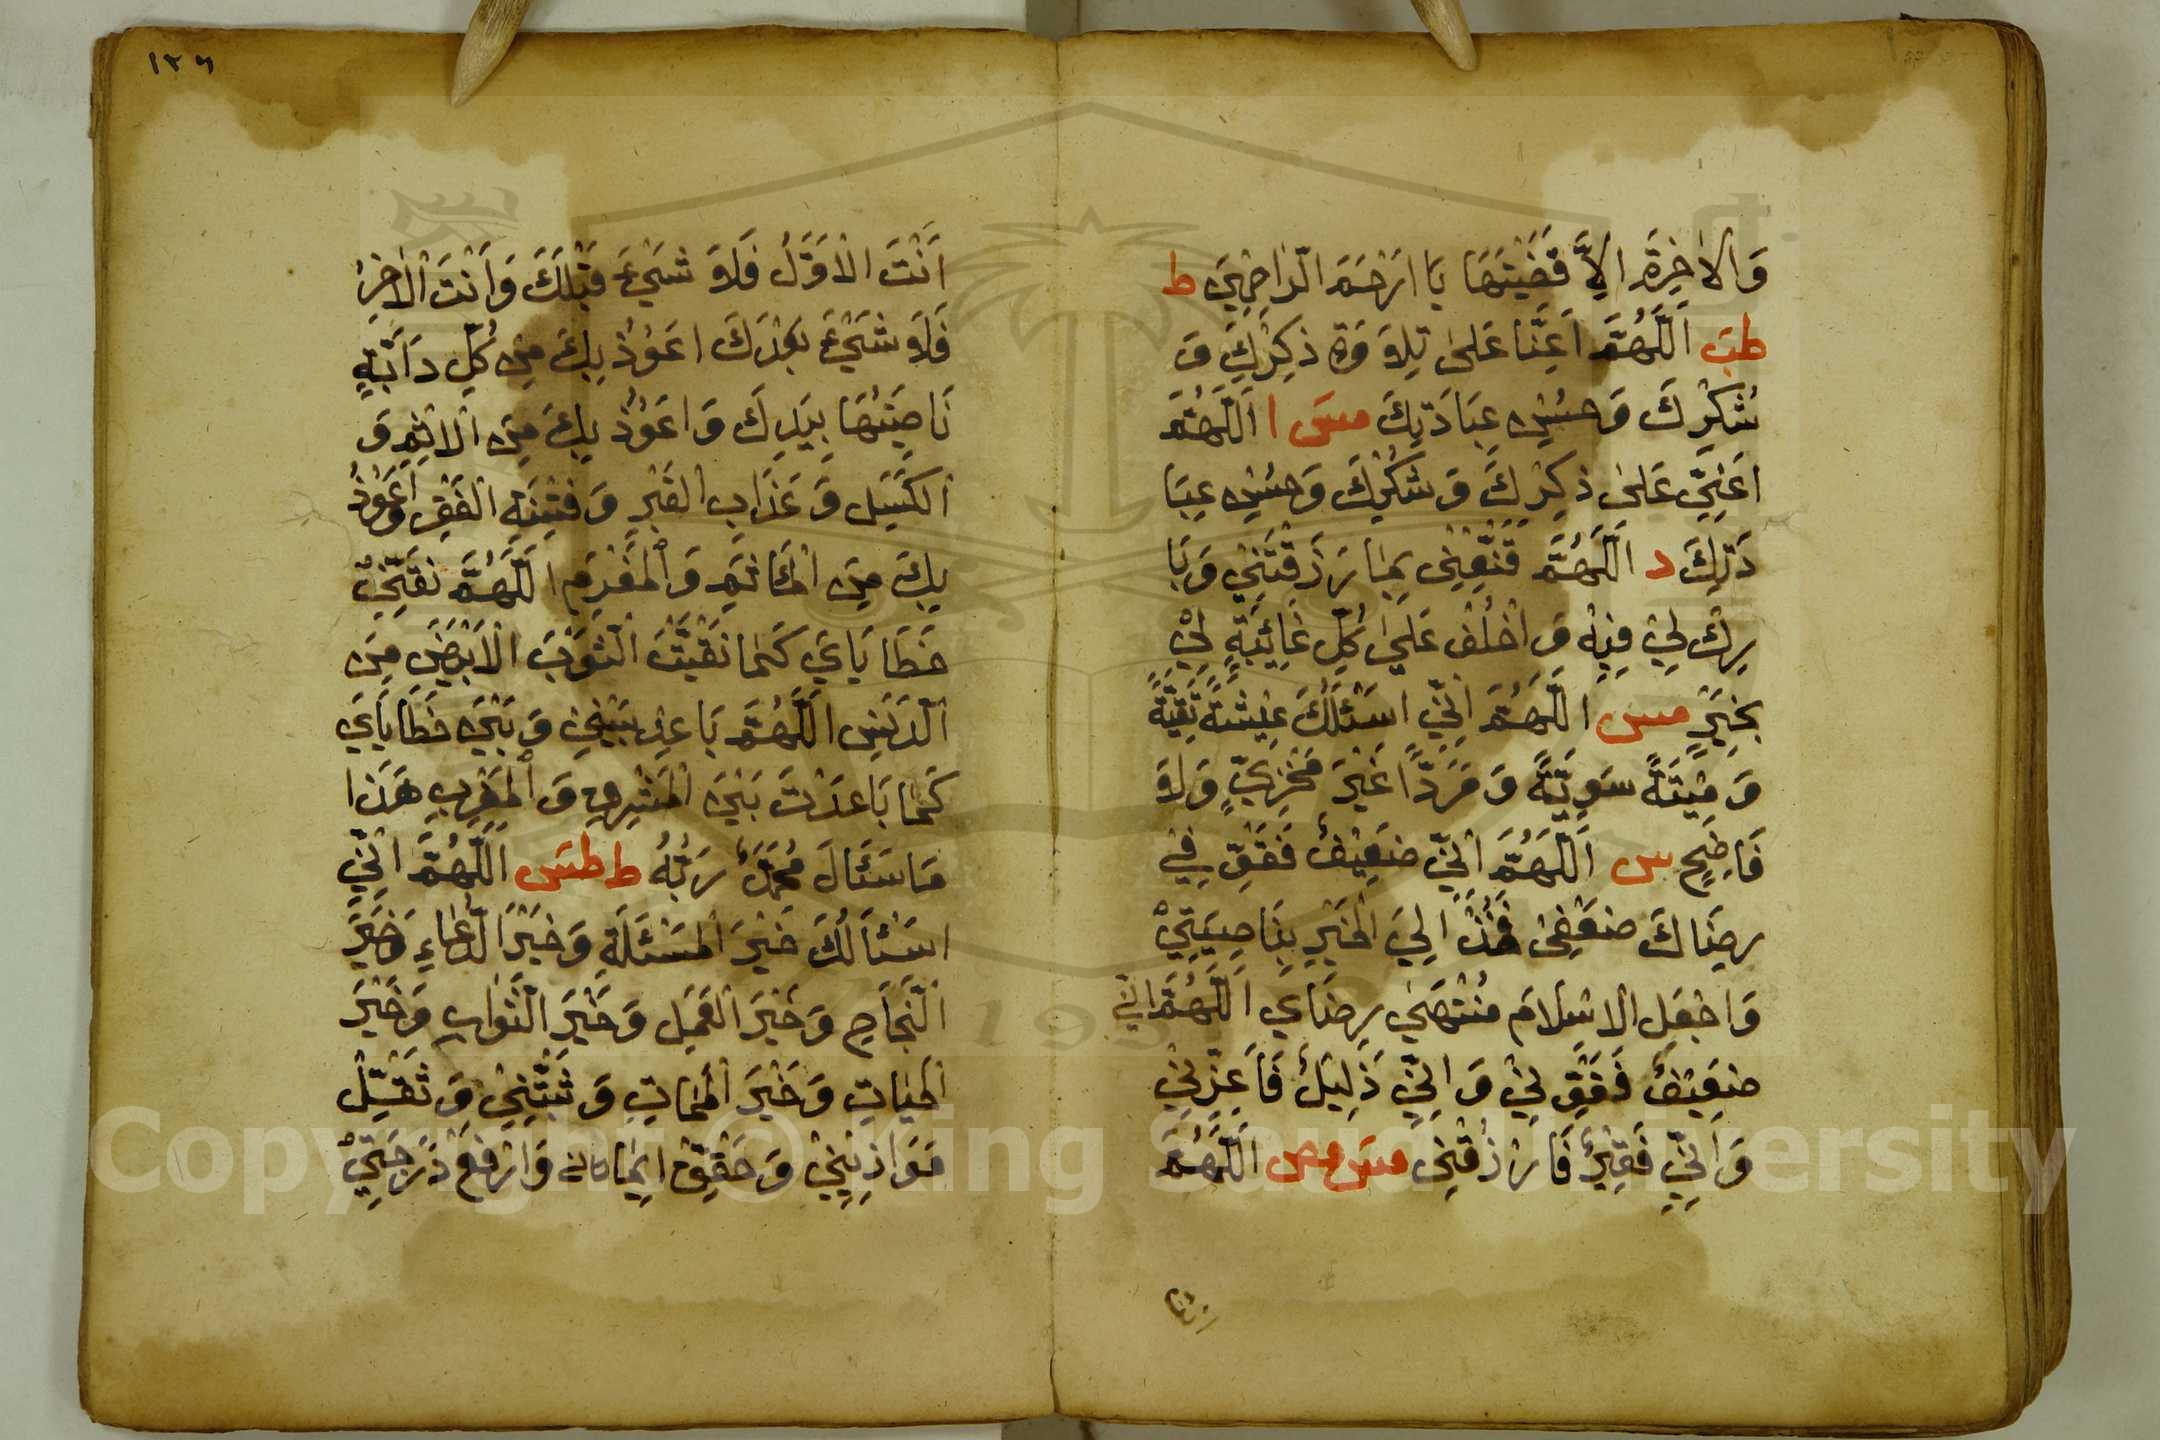 وَالْاٰخِرَةِ اِلَّا قَضَيْتَهَا يَا اَرْحَمَ الرَّاحِمِيْنَ ط
طب اَللّٰهُمَّ اَعِنَّا عَلٰى تِلَاوَةِ ذِكْرِكَ وَ
شُكْرِكَ وَحُسْنِ عِبَادَتِكَ مس ا اَللّٰهُمَّ
اَعِنِّيْ عَلٰى ذِكْرِكَ وَشُكْرِكَ وَحُسْنِ عِبَا
دَتِكَ د اَللّٰهُمَّ قَنِّعْنِيْ بِمَا رَزَقْتَنِيْ وَبَا
رِكْ لِيْ فِيْهِ وَاخْلُفْ عَلٰى كُلِّ غَائِبَةٍ لِيْ
بِخَيْرٍ مس اَللّٰهُمَّ اِنِّيْ اَسْئَلُكَ عِيْشَةً نَقِيَّةً
وَمِيْتَةً سَوِيَّةً وَمَرَدًّا غَيْرَ مَخْزِيٍّ وَلَا
فَاضِحٍ مس اَللّٰهُمَّ اِنِّيْ ضَعِيْفٌ فَقَوِّ فِيْ
رِضَاكَ ضَعْفِيْ وَخُذْ اِلَى الْخَيْرِ بِنَاصِيَتِيْ
وَاجْعَلِ الْاِسْلَامَ مُنْتَهٰى رِضَايَ اَللّٰهُمَّ اِنِّيْ
ضَعِيْفٌ فَقَوِّنِيْ وَاِنِّيْ ذَلِيْلٌ فَاَعِزَّنِيْ
وَاِنِّيْ فَقِيْرٌ فَارْزُقْنِيْ مس مص اَللّٰهُمَّ
انت
١٣٦
اَنْتَ الْاَوَّلُ فَلَا شَيْءَ قَبْلَكَ وَاَنْتَ الْاٰخِرُ
فَلَا شَيْءَ بَعْدَكَ اَعُوْذُ بِكَ مِنْ كُلِّ دَآبَّةٍ
نَاصِيَتُهَا بِيَدِكَ وَاَعُوْذُ بِكَ مِنَ الْاِثْمِ وَ
الْكَسَلِ وَعَذَابِ الْقَبْرِ وَفِتْنَةِ الْفَقْرِ وَاَعُوْذُ
بِكَ مِنَ الْمَاْثَمِ وَالْمَغْرَمِ اَللّٰهُمَّ نَقِّنِيْ
خَطَايَايَ كَمَا نَقَّيْتَ الثَّوْبَ الْاَبْيَضَ مِنَ
الدَّنَسِ اَللّٰهُمَّ بَاعِدْ بَيْنِيْ وَبَيْنَ خَطَايَايَ
كَمَا بَاعَدْتَ بَيْنَ الْمَشْرِقِ وَالْمَغْرِبِ هٰذَا
مَا سَئَالَ مُحَمَّدٌ رَبَّهُ ط طس اَللّٰهُمَّ اِنِّيْ
اَسْئَالُكَ خَيْرَ الْمَسْئَلَةِ وَخَيْرَ الدُّعَاءِ وَخَيْرَ
النَّجَاحِ وَخَيْرَ الْعَمَلِ وَخَيْرَ الثَّوَابِ وَخَيْرَ
الْحَيَاتِ وَخَيْرَ الْمَمَاتِ وَثَبِّتْنِيْ وَثَقِّلْ
مَوَازِيْنِيْ وَحَقِّقْ اِيْمَانِيْ وَارْفَعْ دَرَجَتِيْ
Copyright © King Saud University